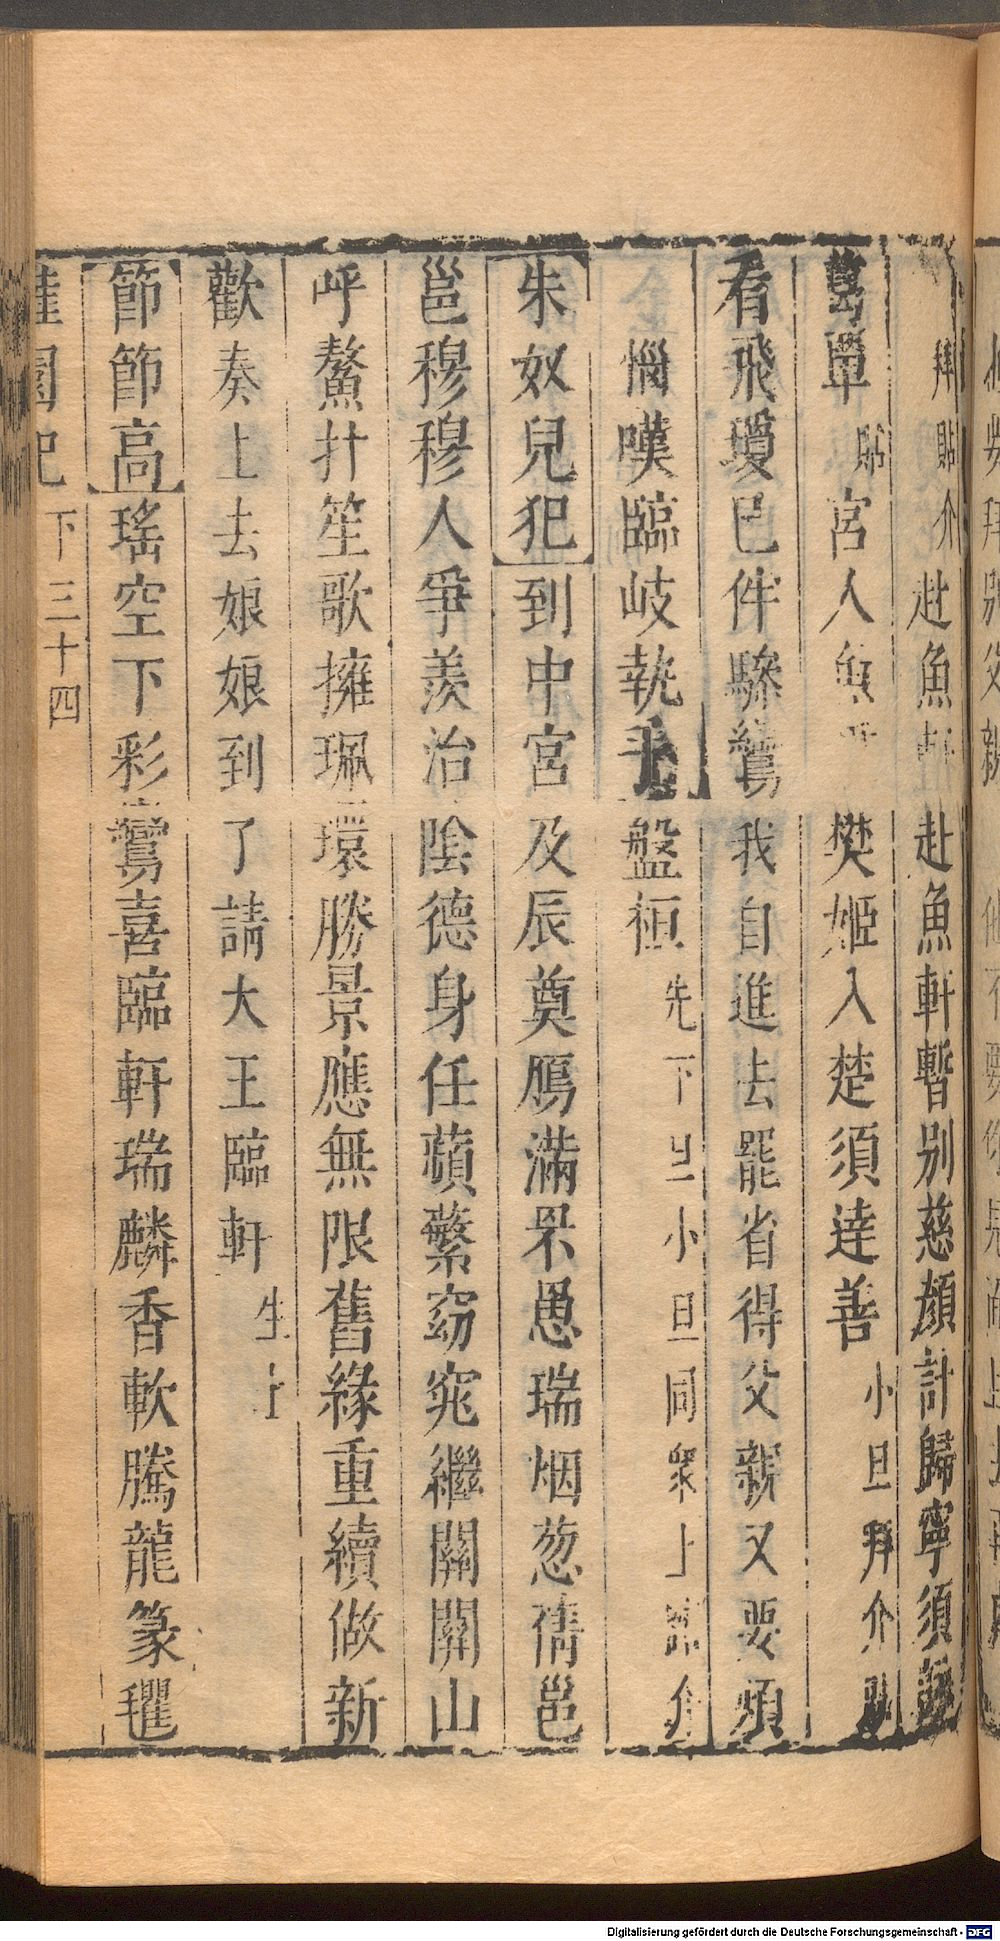 拜貼介赴魚軒赴魚軒暫別慈顏計歸寧須
葛覃貼宮人樊姬入楚須達善小旦拜介
看飛瓊已伴驂鸞我自進去罷省得父親又要煩
惱嘆臨岐執手盤桓先下旦小旦同衆上
朱奴兒犯到中宮及辰奠鴈滿罘罳瑞烟葱蒨邕
邕穆穆人爭羨治陰德身任蘋蘩窈窕繼關關山
呼鰲抃笙歌擁珮環勝景應無限舊緣重續做新
歡奏上去娘娘到了請大王臨軒生上
節節高瑤空下彩鸞喜臨軒瑞麟香軟騰龍篆氍
園記下三十四
Digitalisierung gefördert durch die Deutsche Forschungsgemeinschaft - DFG